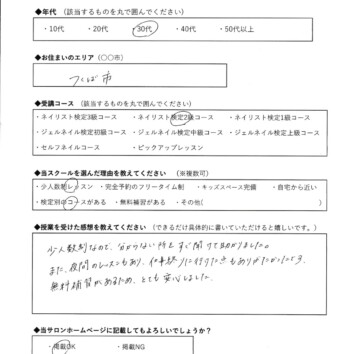 ◆年代 （該当するものを丸で囲んでください）
・10代 ・20代 ・30代 ・40代 ・50代以上
◆お住まいのエリア（〇〇市）
つくば市
◆受講コース （該当するものを丸で囲んでください）
・ネイリスト検定3級コース ・ネイリスト検定2級コース ・ネイリスト検定1級コース
・ジェルネイル検定初級コース ・ジェルネイル検定中級コース ・ジェルネイル検定上級コース
・セルフネイルコース ・ピックアップレッスン
◆当スクールを選んだ理由を教えてください （※複数可）
・少人数制レッスン ・完全予約のフリータイム制 ・キッズスペース完備 ・自宅から近い
・検定別のコースがある ・無料補習がある ・その他( )
◆授業を受けた感想を教えてください （できるだけ具体的に書いていただけると嬉しいです。）
少人数制なので、分からない所もすぐ聞けて助かりました。
また、夜間のレッスンもあり、仕事終りに行けた点もありがたかったです。
無料補習があるため、とても安心しました。
◆当サロンホームページに記載してもよろしいでしょうか？
・掲載OK ・掲載NG